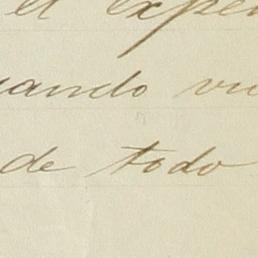 el expe
uando vi
de todo